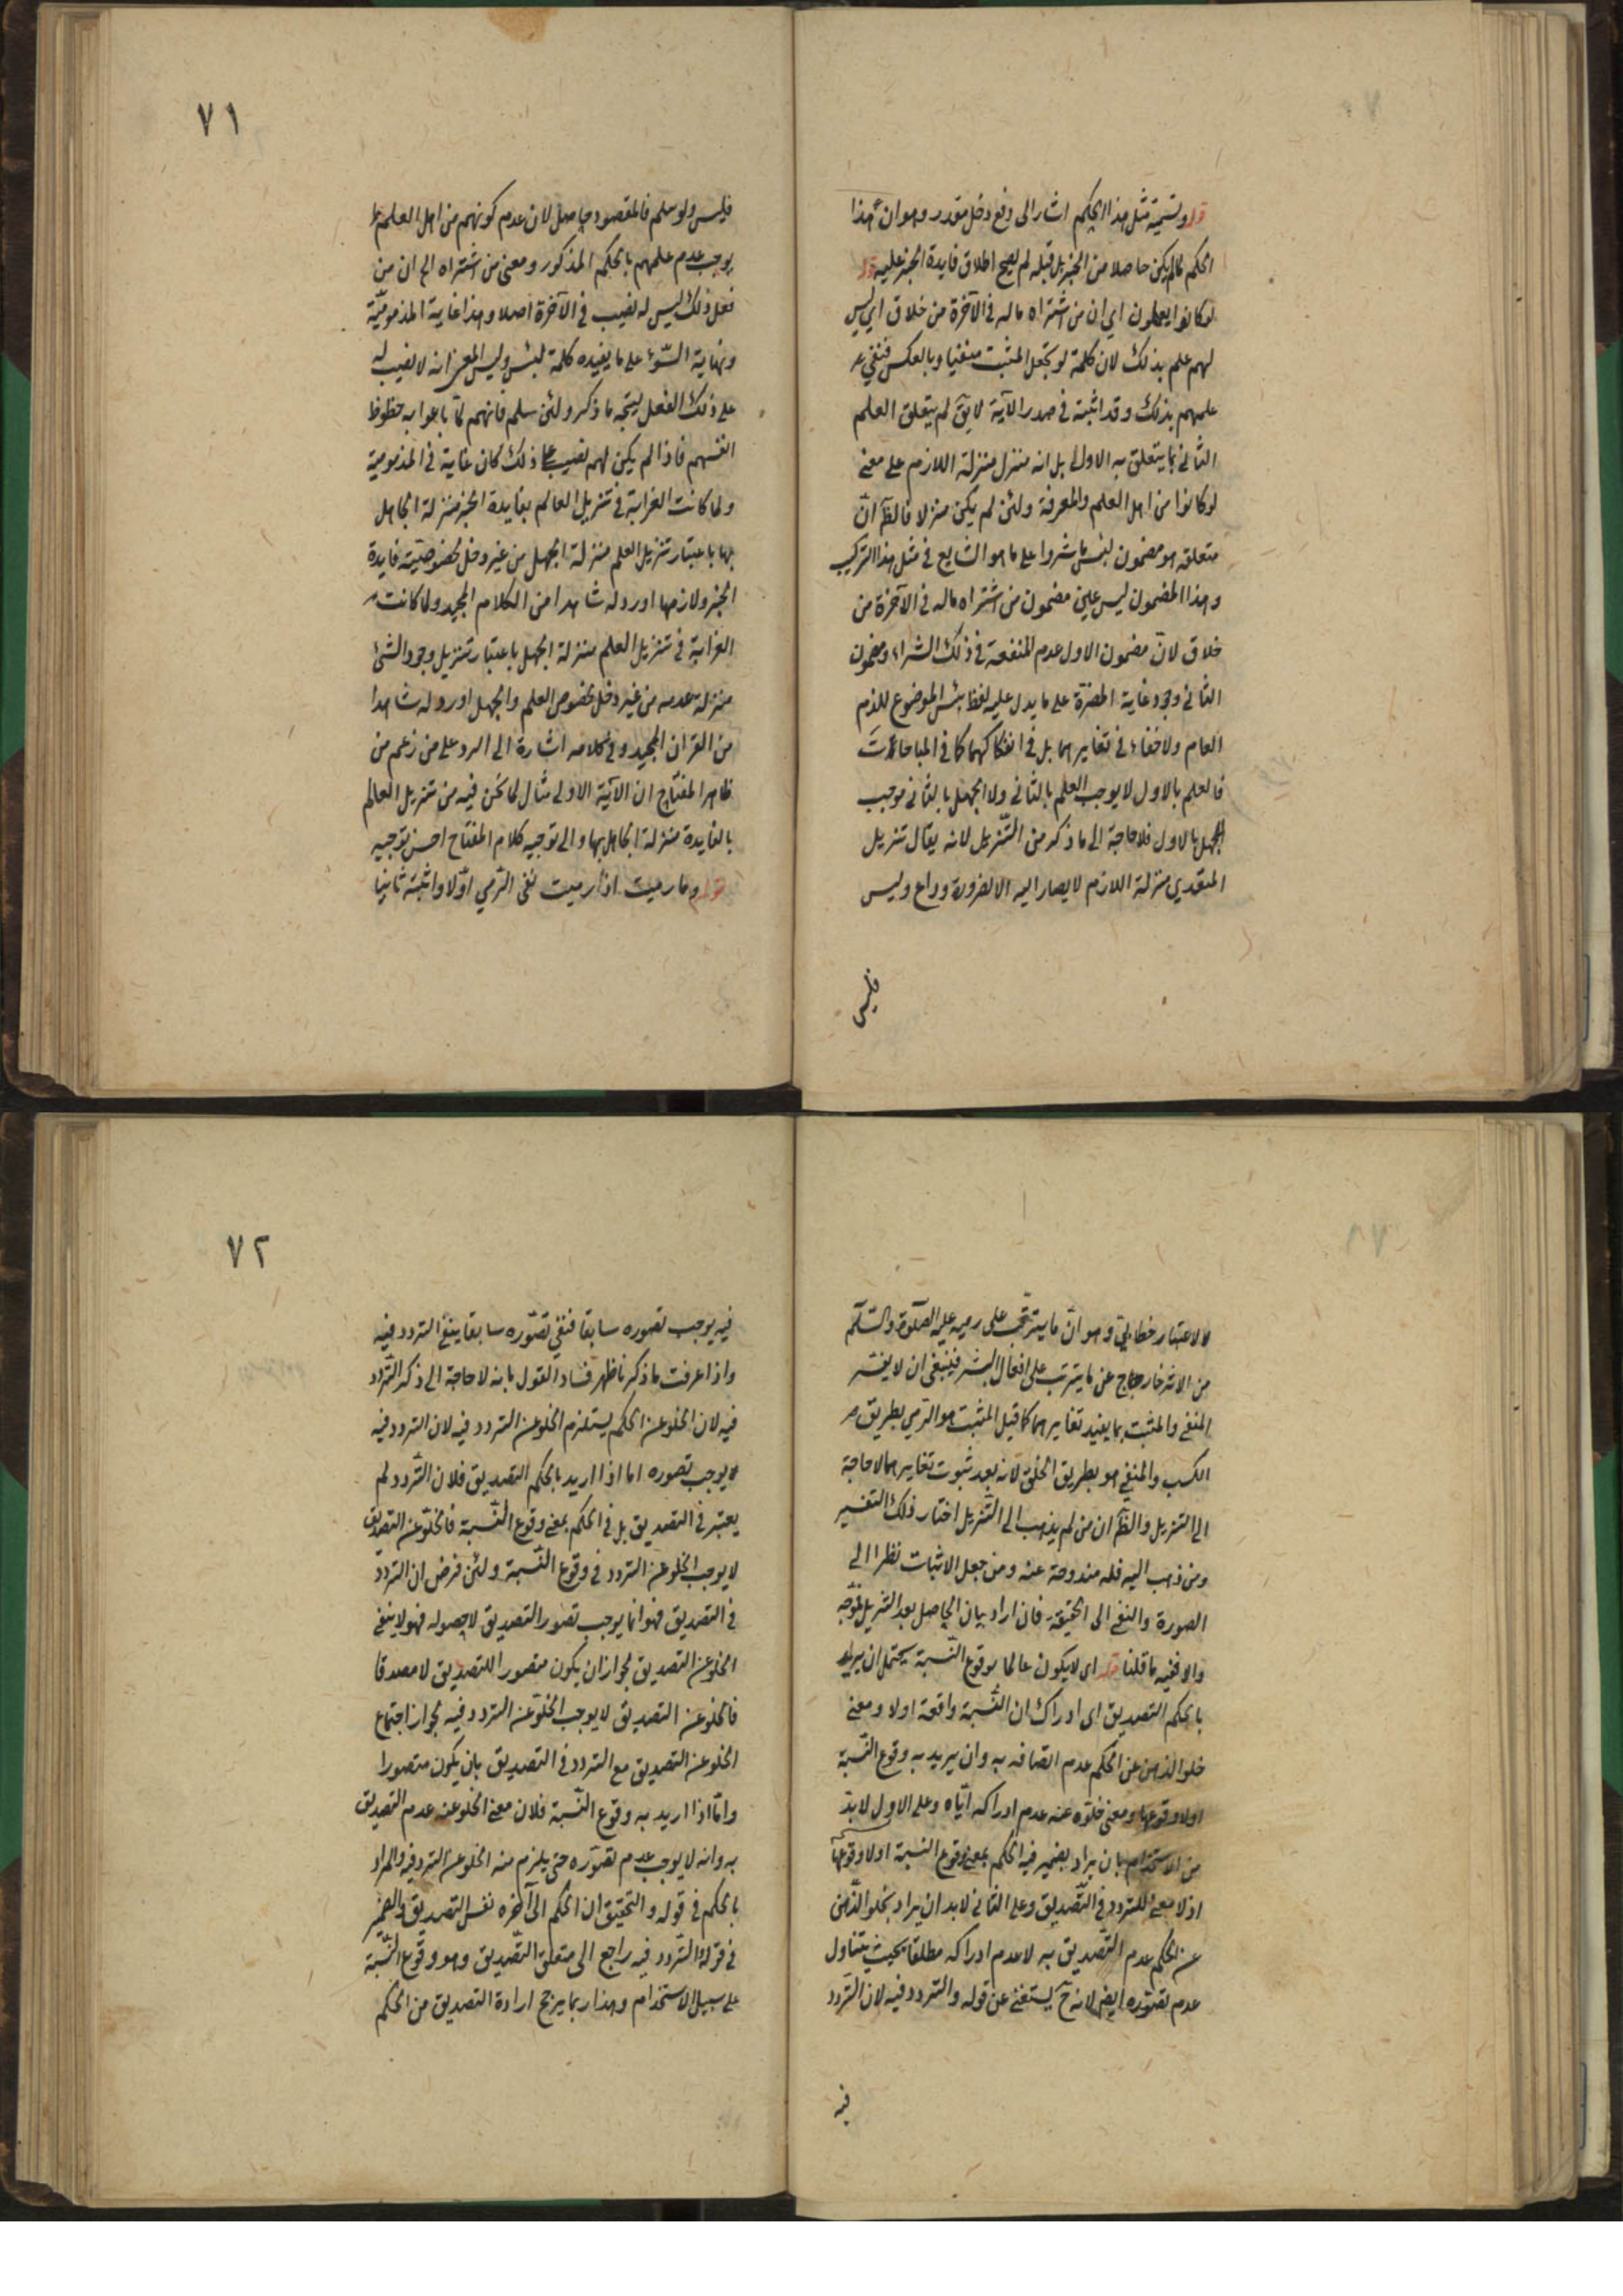 قوله وتسمية مثل هذا الحكم اشار الى دفع دخل مقدر وهو ان هذا
الحكم لما لم يكن حاصلا من الخبر بل قبله لم يصح اطلاق فايدة الخبر عليه قوله
لو كانوا يعلمون اي ان من اشتراه ماله في الآخرة من خلاق اي ليس
لهم علم بذلك لان كلمة لو تجعل المثبت منفيا وبالعكس فنفى
علمهم بذلك وقد اثبته في صدر الآية لا يق لم يتعلق العلم
الثاني بما يتعلق به الاول بل انه منزل منزلة اللازم على معنى
لو كانوا من اهل العلم والمعرفة ولئن لم يكن منزلا فالظ ان
متعلقه هو مضمون لبئس ما شروا على ما هو الشايع في مثل هذا التركيب
وهذا المضمون ليس عين مضمون من اشتراه ماله في الآخرة من
خلاق لان مضمون الاول عدم المنفعة في ذلك الشراء ومضمون
الثاني وجود غاية المضرة على ما يدل عليه لفظ بئس الموضوع للذم
العام ولا خفاء في تغايرهما بل في انفكاكهما كما في المباحات
فالعلم بالاول لا يوجب العلم بالثاني ولا الجهل بالثاني موجب
الجهل بالاول فلا حاجة الى ما ذكر من التنزيل لانه يقال تنزيل
المتعدي منزلة اللازم لا يصار اليه الا لضرورة وداع وليس
فليس
٧١
فليس ولو سلم فالمقصود حاصل لان عدم كونهم من اهل العلم
يوجب عدم علمهم بالحكم المذكور ومعنى من اشتراه الخ ان من
فعل ذلك ليس له نصيب في الآخرة اصلا وهذا غاية المذمومية
ونهاية السوء على ما يفيده كلمة لبئس وليس المعنى انه لا نصيب له
على ذلك الفعل ليتجه ما ذكر ولئن سلم فانهم لما باعوا به حظوظ
انفسهم فاذا لم يكن لهم نصيب على ذلك كان غاية في المذمومية
ولما كانت الغرابة في تنزيل العالم بفايدة الخبر منزلة الجاهل
بها باعتبار تنزيل العلم منزلة الجهل من غير دخل لخصوصية فايدة
الخبر ولازمها اورد له شاهدا من الكلام المجيد ولما كانت
الغرابة في تنزيل العلم منزلة الجهل باعتبار تنزيل وجود الشئ
منزلة عدمه من غير دخل لخصوص العلم والجهل اورد له شاهدا
من القران المجيد وفي كلامه اشارة الى الرد على من زعم من
ظاهر المفتاح ان الآية الاولى مثال لما نحن فيه من تنزيل العالم
بالفايدة منزلة الجاهل بها والى توجيه كلام المفتاح احسن توجيه
قوله وما رميت اذ رميت نفى الرمي اولا واثبته ثانيا
لاعتبار خطابي وهو ان ما يترتب على رميه عليه الصلوة والسلم
من الاثر خارج عن ما يترتب على افعال البشر فينبغى ان لا يفسر
المنفى والمثبت بما يفيد تغايرهما كما قيل المثبت هو الرمي بطريق
الكسب والمنفي هو بطريق الخلق لانه بعد ثبوت تغايرهما لا حاجة
الى التنزيل والظ ان من لم يذهب الى التنزيل اختار ذلك التفسير
ومن ذهب اليه فله مندوحة عنه ومن جعل الاثبات نظرا الى
الصورة والنفى الى الحقيقة فان اراد بيان الحاصل بعد التنزيل فوجه
والا ففيه ما قلنا قوله اى لا يكون عالما بوقوع النسبة يحتمل ان يريد
بالحكم التصديق اى ادراك ان النسبة واقعة اولا ومعنى
خلو الذهن عن الحكم عدم اتصافه به وان يريد به وقوع النسبة
اولا وقوعها ومعنى خلوه عنه عدم ادراكه اياه وعلى الاول لابد
من الاستخدام بان يراد بضمير فيه الحكم بمعنى وقوع النسبة اولا وقوعها
اذ لا معنى للتردد في التصديق وعلى الثانى لابد ان يراد بخلو الذهن
عن الحكم عدم التصديق به لا عدم ادراكه مطلقا بحيث يتناول
عدم تصوره ايضا لانه ح يستغنى عن قوله والتردد فيه لان التردد
فيه
٧٢
فيه يوجب تصوره سابقا فنفي تصوره سابقا ينفي التردد فيه
واذا عرفت ما ذكرنا ظهر فساد القول بانه لا حاجة الى ذكر التردد
فيه لان الخلو عن الحكم يستلزم الخلو عن التردد فيه لان التردد فيه
لا يوجب تصوره اما اذا اريد بالحكم التصديق فلان التردد لم
يعتبر في التصديق بل في الحكم بمعنى وقوع النسبة فالخلو عن التصديق
لا يوجب الخلو عن التردد في وقوع النسبة ولئن فرض ان التردد
في التصديق فهو انما يوجب تصور التصديق لا حصوله فهو لا ينفى
الخلو عن التصديق لجواز ان يكون متصورا للتصديق لا مصدقا
فالخلو عن التصديق لا يوجب الخلو عن التردد فيه لجواز اجتماع
الخلو عن التصديق مع التردد في التصديق بان يكون متصورا
واما اذا اريد به وقوع النسبة فلان معنى الخلو عنه عدم التصديق
به وانه لا يوجب عدم تصوره حتى يلزم منه الخلو عن التردد فيه والمراد
بالحكم في قوله والتحقيق ان الحكم الى آخره نفس التصديق والضمير
في قوله والتردد فيه راجع الى متعلق التصديق وهو وقوع النسبة
على سبيل الاستخدام وهذا ربما يرجح ارادة التصديق من الحكم